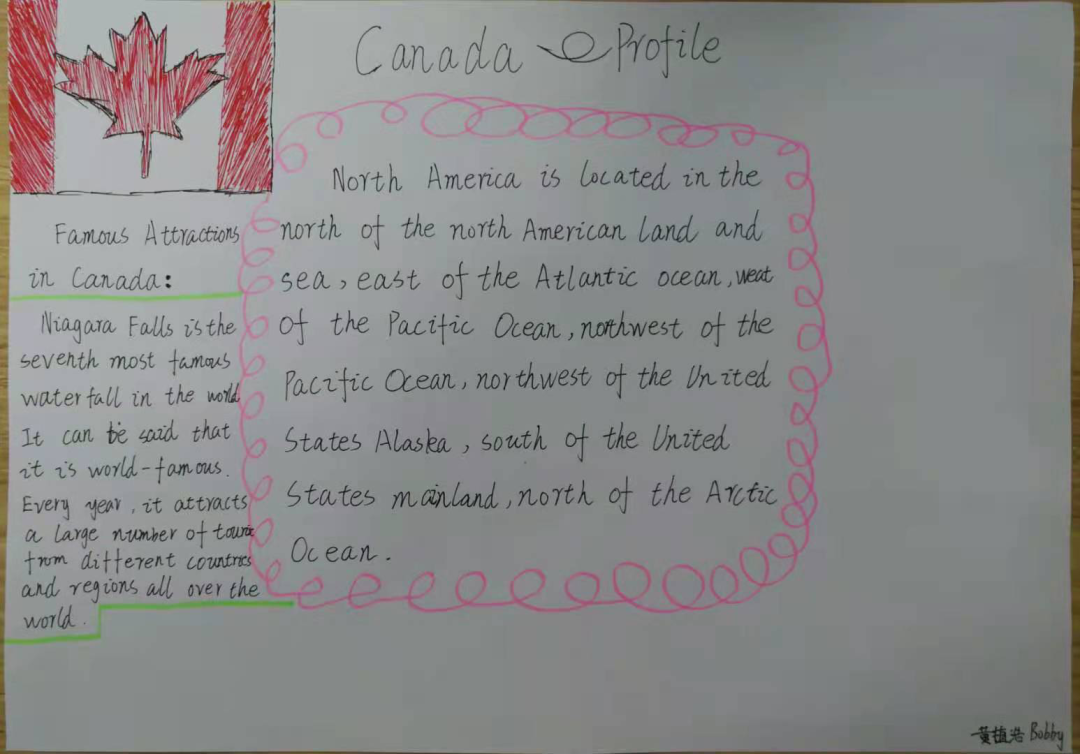 Canada Profile
Famous Attractions
in Canada:
Niagara Falls is the
seventh most famous
waterfall in the world
It can be said that
it is world-famous.
Every year, it attracts
a large number of
from different countries
and regions all over the
world.
North America is located in the
north of the north American land and
sea, east of the Atlantic ocean, weat
of the Pacific Ocean, northwest of the
Pacific Ocean, northwest of the United
States Alaska, south of the United
States mainland, north of the Arctic
Ocean.
黄植 Bobby